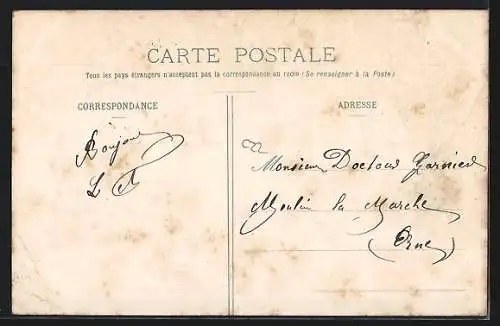 CARTE POSTALE
Tous les pays étrangers n'acceptent pas la correspondance au recto (Se renseigner à la Poste)
CORRESPONDANCE
ADRESSE
Bonjour
L F
Monsieur Docteur Garnier
Moulin la Marche
(Orne)